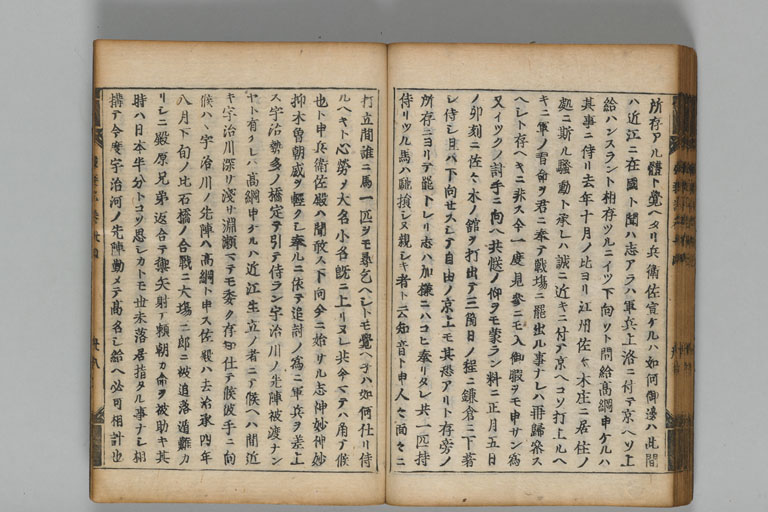 所存アル體ト覺ヘタリ兵衛佐宣ケルハ如何御邊ハ此間
ハ近江ニ在國ト聞ハ志アラハ軍兵上洛ニ付テ京ヘソ上
給ハンスラント相存ツルニイツ下向ソト問給高綱申ケルハ
其事ニ侍リ去年十月ノ比ヨリ江州佐々木庄ニ居住ノ
處ニ斯ル騒動ト承レハ誠ニ近キニ付テ京ヘコソ打上ルヘ
キニ軍ノ習命ヲ君ニ奉テ戰場ニ罷出ル事ナレハ再歸參ス
ヘシト存ヘキニ非ス今一度見參ニモ入御暇ヲモ申サン為
又イツクノ討手ニ向ヘ共慥ノ仰ヲモ蒙ラン料ニ正月五日
ノ卯刻ニ佐々木ノ舘ヲ打出テ三箇日ノ程ニ鎌倉ニ下著
シ侍シ且ハ下向セスシテ自由ノ京上モ其恐アリト存旁ノ
所存ニヨリテ罷下レリ志ハ加樣ニハコヒ奉リタレ共一匹持
侍リツル馬ハ馳損シヌ親シキ者ト云知音ト申人々面々ニ
打立間誰ニ馬一匹ヲモ尋乞ヘシトモ覺ヘ子ハ如何仕リ侍
ルヘキト心勞メ大名小名既ニ上リヌレ共今マテハ角テ候
也ト申兵衛佐殿ハ聞敢ス下向今ニ始サル志神妙神妙
抑木曽朝威ヲ輕クシ奉ルニ依テ追討ノ為ニ軍兵ヲ差上
ス宇治勢多ノ橋定テ引テ侍ラン宇治川ノ先陣被渡ナン
ヤト有ケレハ高綱申ケルハ近江生立ノ者ニテ候ヘハ間近
キ宇治川深サ淺サ淵瀬マテモ委ク存知仕テ候彼手ニ向
候ハヽ宇治川ノ先陣ハ高綱ト申ス佐殿ハ去治承四年
八月下旬ノ比石橋ノ合戰ニ大場三郎ニ被追落遁難カ
リシニ殿原兄弟返合テ禦矢射テ頼朝カ命ヲ被助キ其
時ハ日本半分トコソ思シカトモ世未落居指タル事ナシ相
構テ今度宇治河ノ先陣勤メテ高名シ給ヘ必可相計也